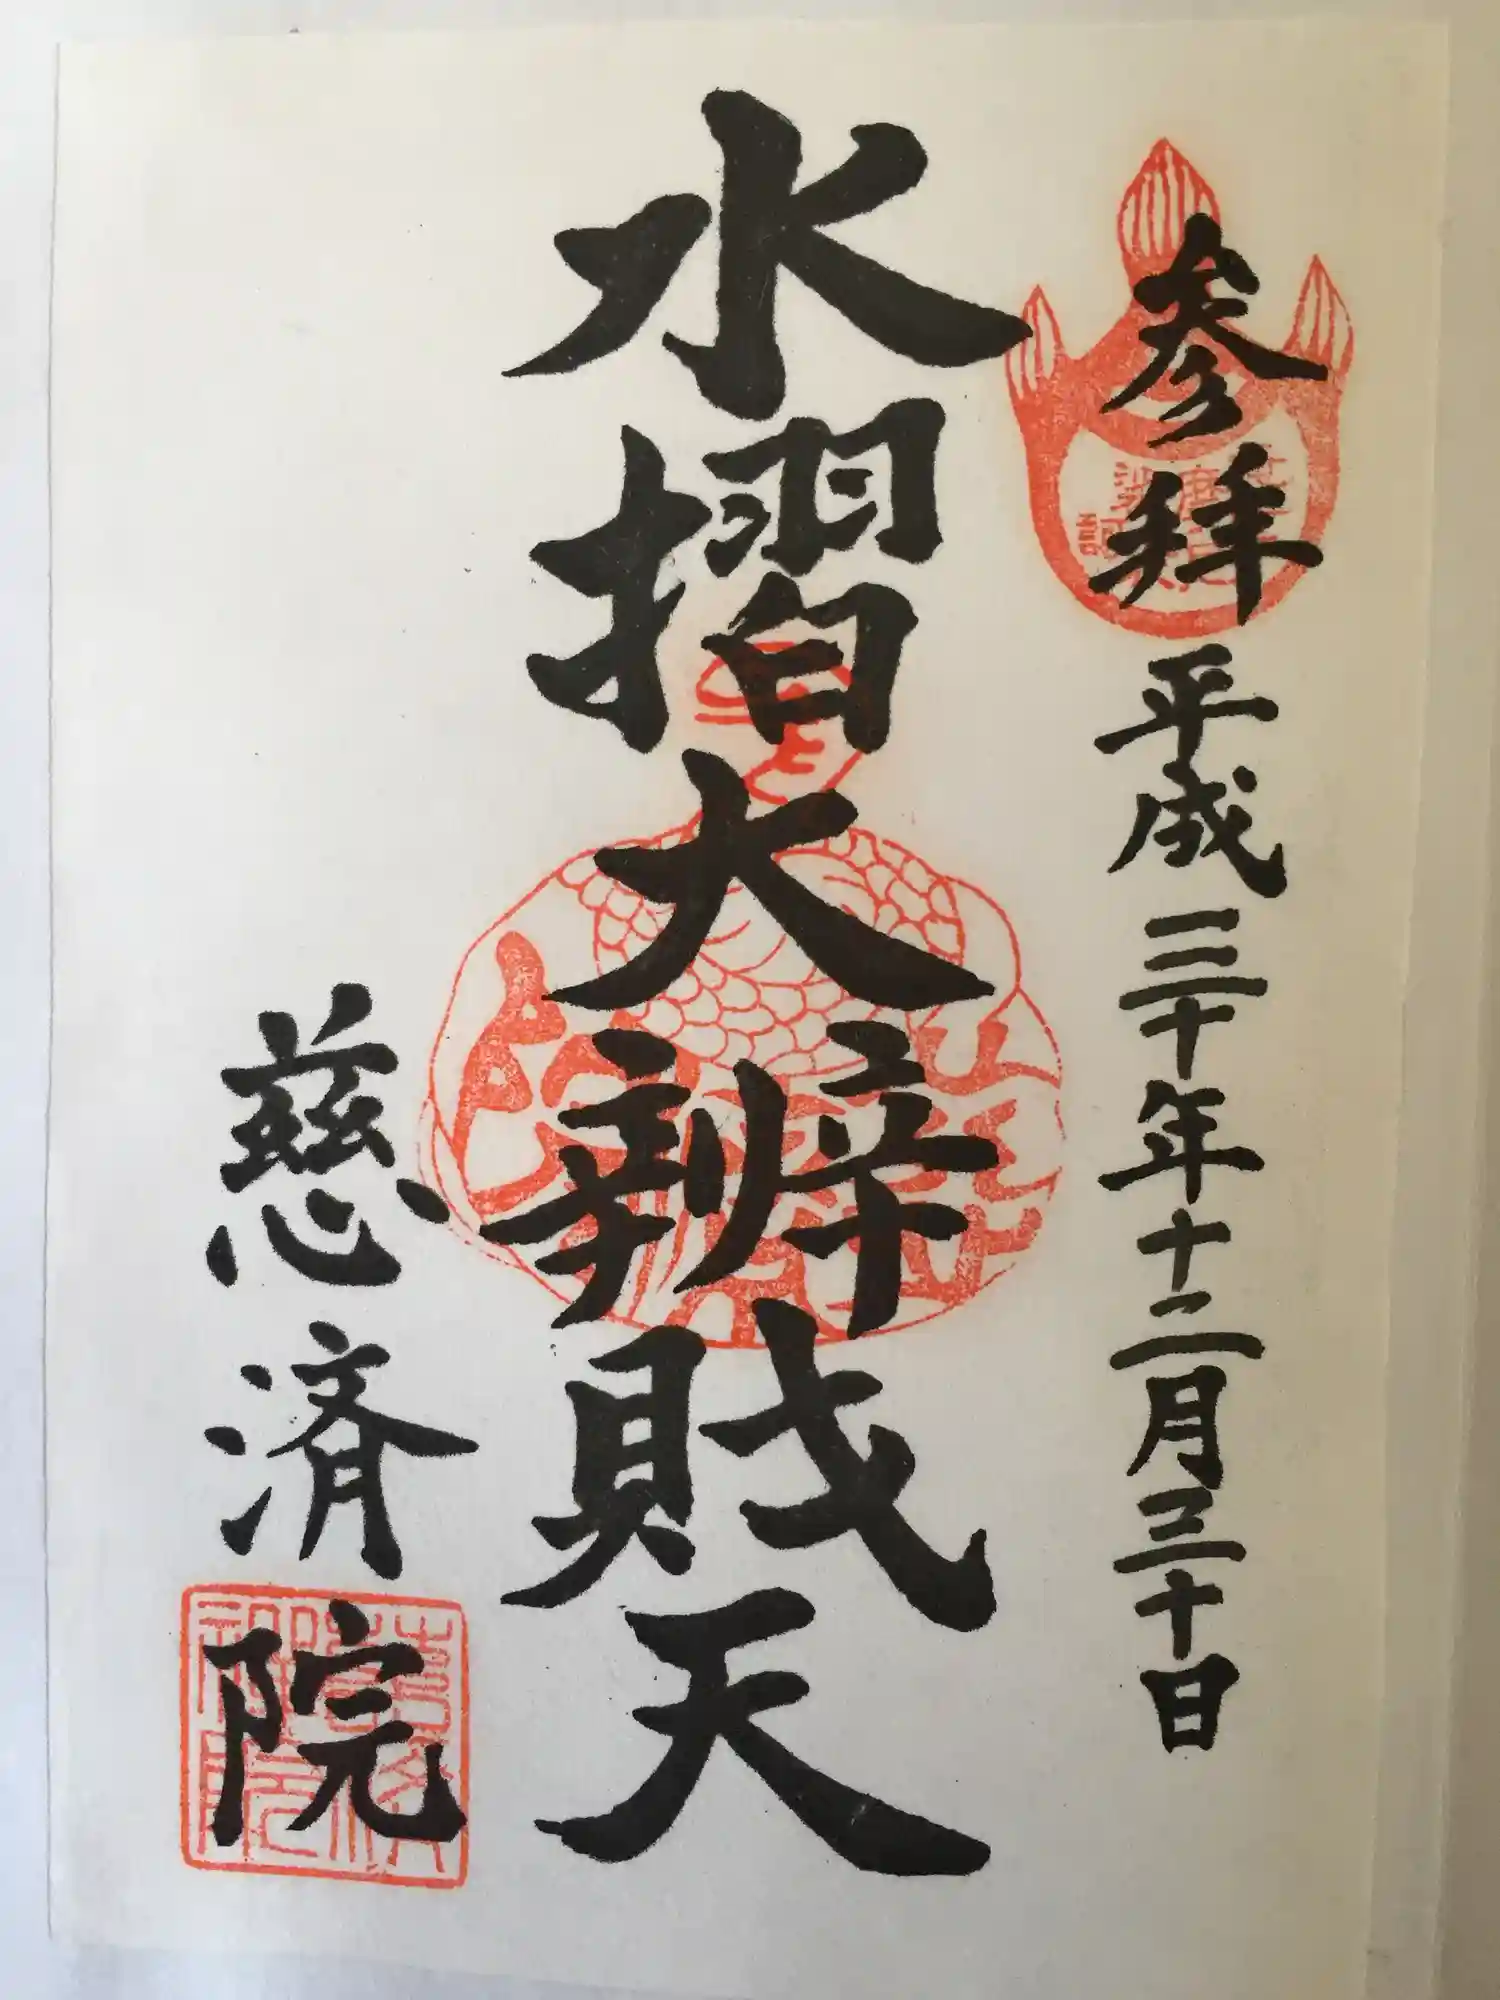 参拜 平成三十年十二月三十日
水摺大辨財天
慈済院